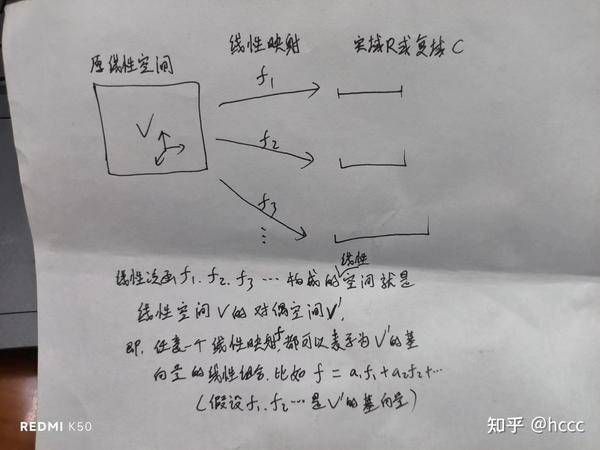 原线性空间 线性映射 实域R或复域C
V
f₁
f₂
f₃
⋮
线性泛函f₁、f₂、f₃…构成的线性空间就是
线性空间V的对偶空间V′,
即,任意一个线性映射f都可以表示为V′的基
向量的线性组合.比如 f = a₁f₁+a₂f₂+…
(假设f₁、f₂…是V′的基向量)
REDMI K50
知乎 @hccc